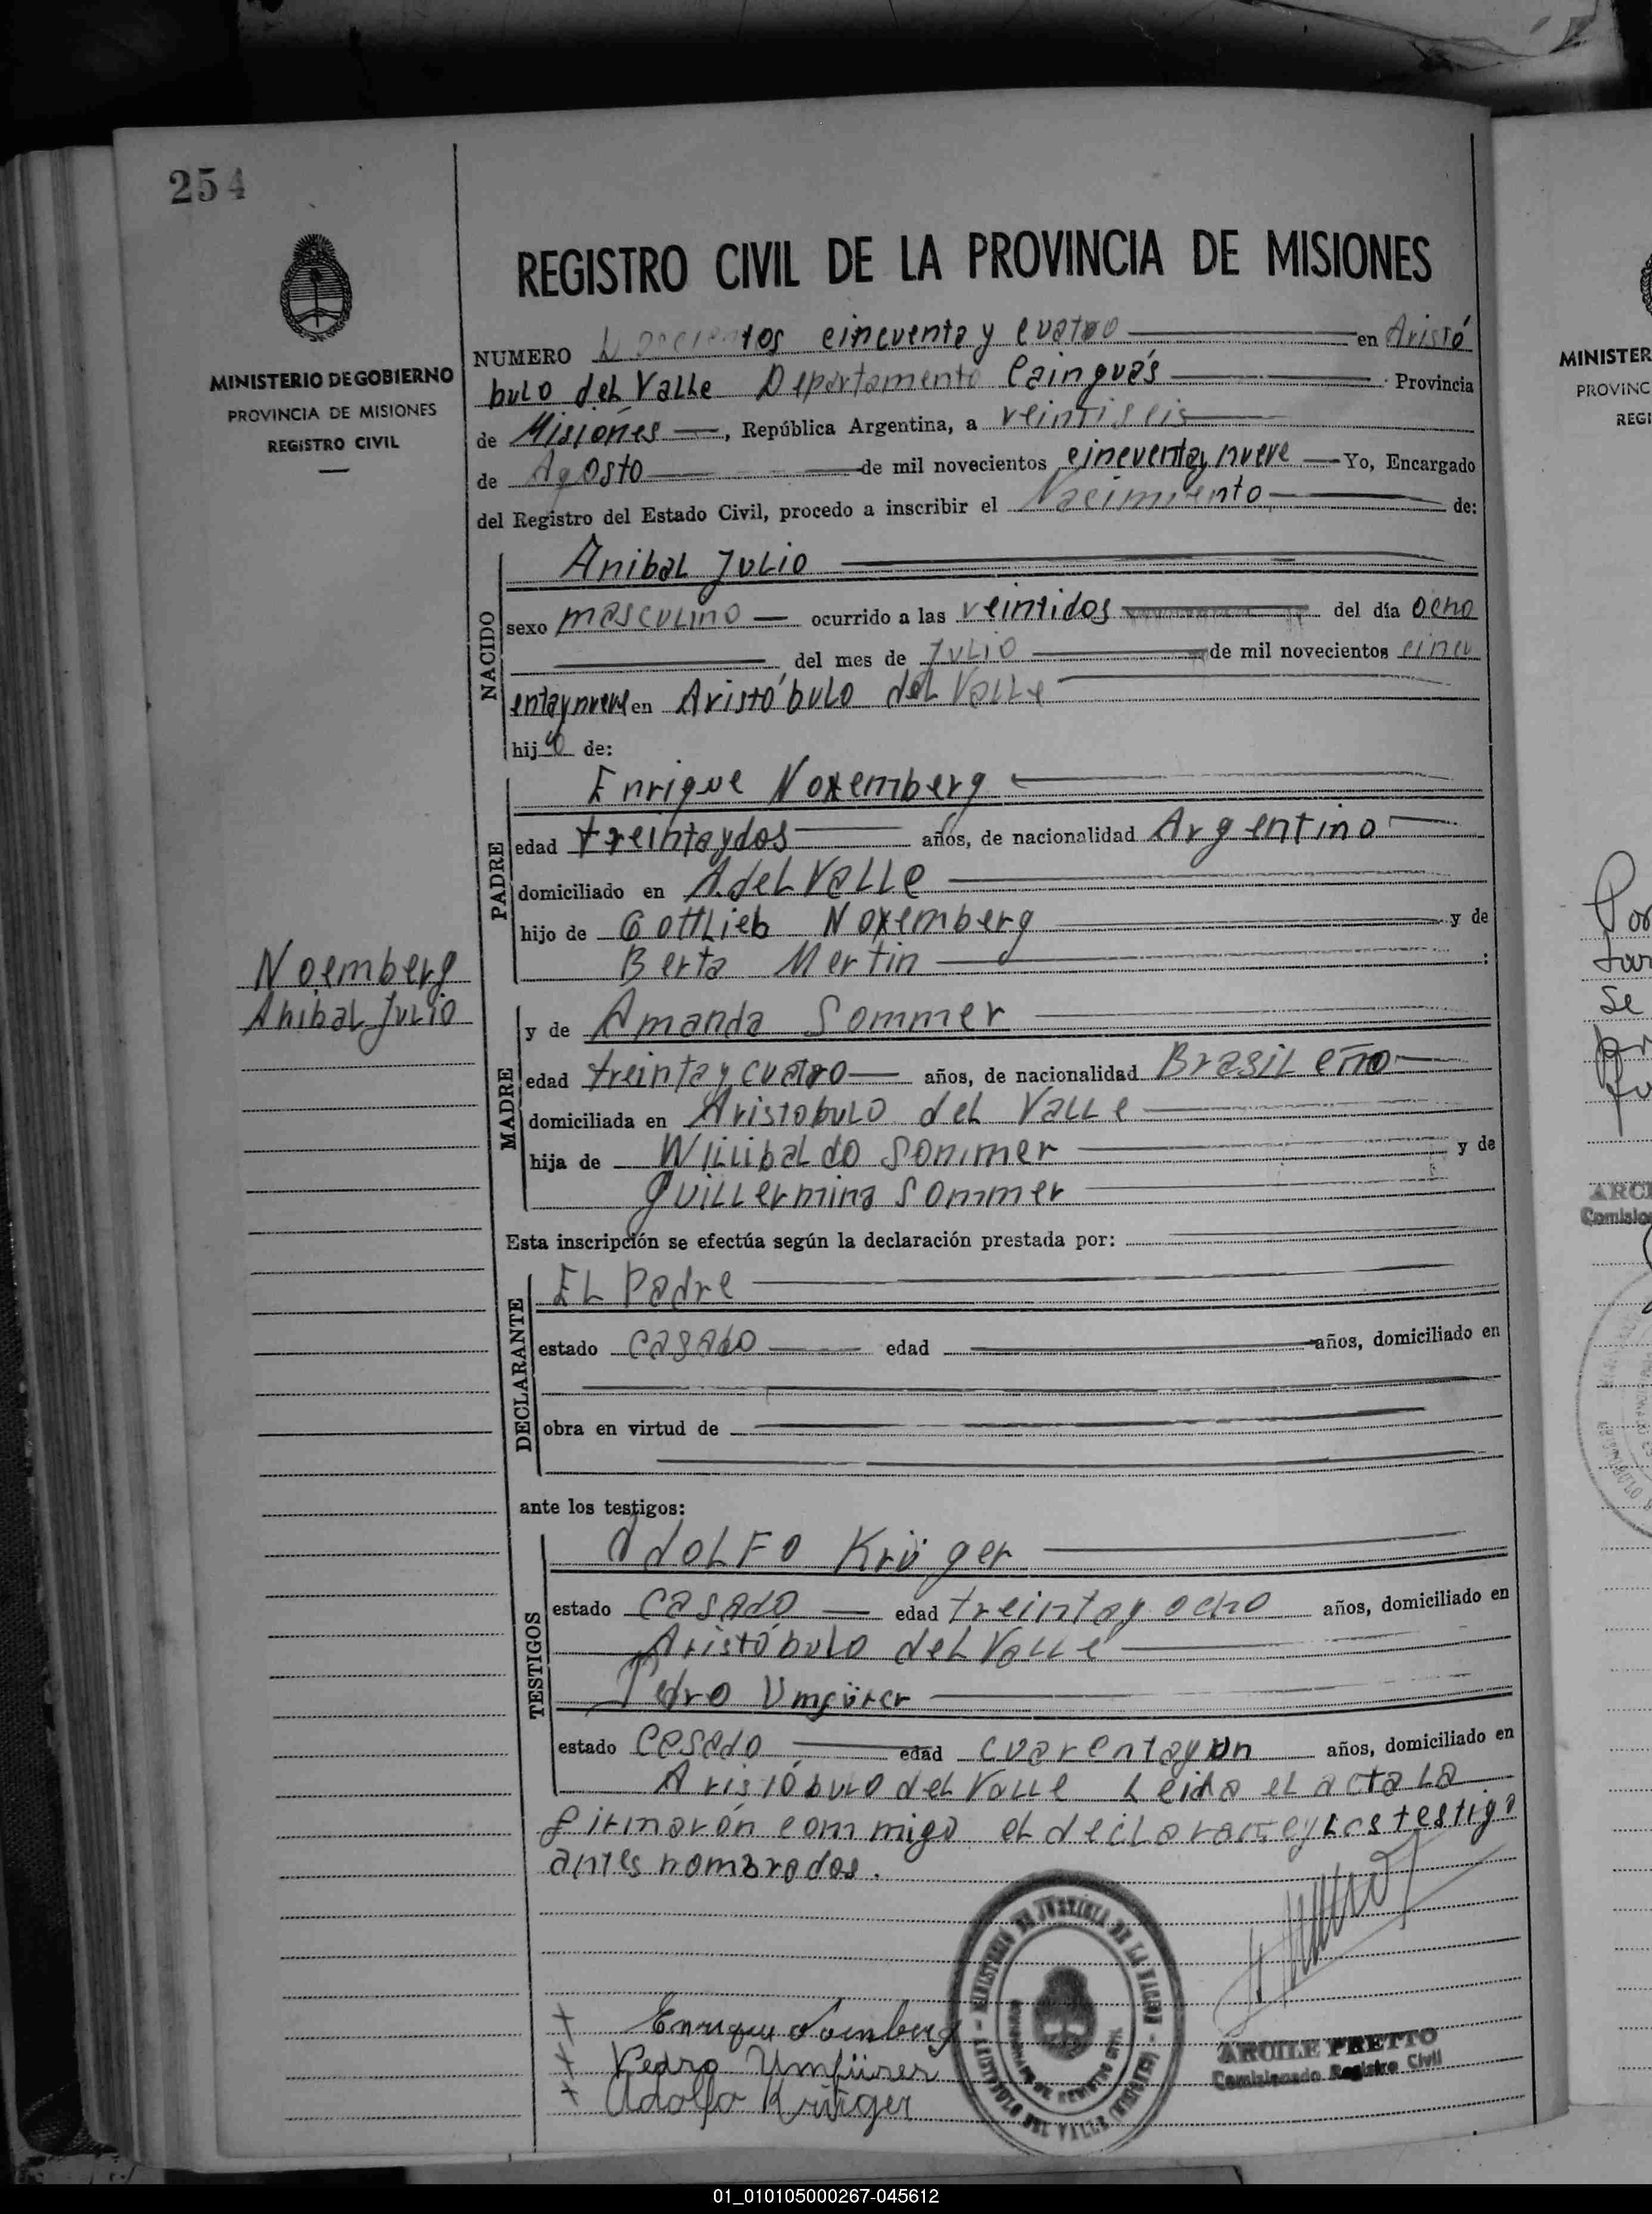 254
REGISTRO CIVIL DE LA PROVINCIA DE MISIONES
MINISTERIO DE GOBIERNO
PROVINCIA DE MISIONES
REGISTRO CIVIL
NUMERO Doscientos cincuenta y cuatro en Aristó
bulo del Valle Departamento Cainguás Provincia
de Misiónes, República Argentina, a veintiseis
de Agosto de mil novecientos cincuentaynueve Yo, Encargado
del Registro del Estado Civil, procedo a inscribir el Nacimiento de:
NACIDO
Anibal Julio
sexo masculino ocurrido a las veintidos del día ocho
del mes de Julio de mil novecientos cincu
entaynueve en Aristóbulo del Valle
hijo de:
PADRE
Enrique Noxemberg
edad treintaydos años, de nacionalidad Argentino
domiciliado en A. del Valle
hijo de Gottlieb Noxemberg y de
Berta Mertin :
Noemberg
Anibal Julio
MADRE
y de Amanda Sommer
edad treintaycuatro años, de nacionalidad Brasileño
domiciliada en Aristobulo del Valle
hija de Willibaldo Sommer y de
Guillermina Sommer
Esta inscripción se efectúa según la declaración prestada por:
DECLARANTE
El Padre
estado casado edad años, domiciliado en
obra en virtud de
ante los testigos:
TESTIGOS
Adolfo Krüger
estado casado edad treintay ocho años, domiciliado en
Aristóbulo del Valle
Pedro Umfürer
estado casado edad cuarentayun años, domiciliado en
Aristóbulo del Valle Leida el acta la
firmarón commigo el declaranteylos testigo
antes nombrados.
MINISTERIO DE JUSTICIA DE LA NACION
ARISTOBULO DEL VALLE (MISIONES)
Enrique Noemberg
Pedro Umfürer
Adolfo Krüger
ARCILE PRETTO
Comisionado Registro Civil
MINISTER
PROVINC
REGI
Por
se
ARCI
Comisio
01_010105000267-045612